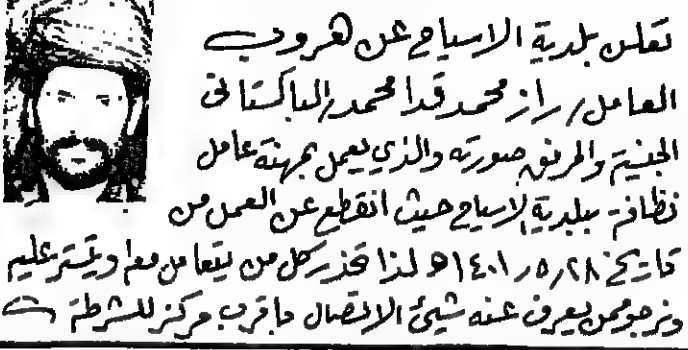 تعلن بلدية الاسياح عن هروب
العامل / راز محمد قدا محمد الباكستاني
الجنسية والمرفق صورته والذي يعمل بمهنة عامل
نظافة ببلدية الاسياح حيث انقطع عن العمل من
تاريخ ١٤٠١/٥/٢٨ه لذا تحذر كل من يتعامل معه او يتستر عليه
ونرجو ممن يعرف عنه شيئ الاتصال باقرب مركز للشرطة